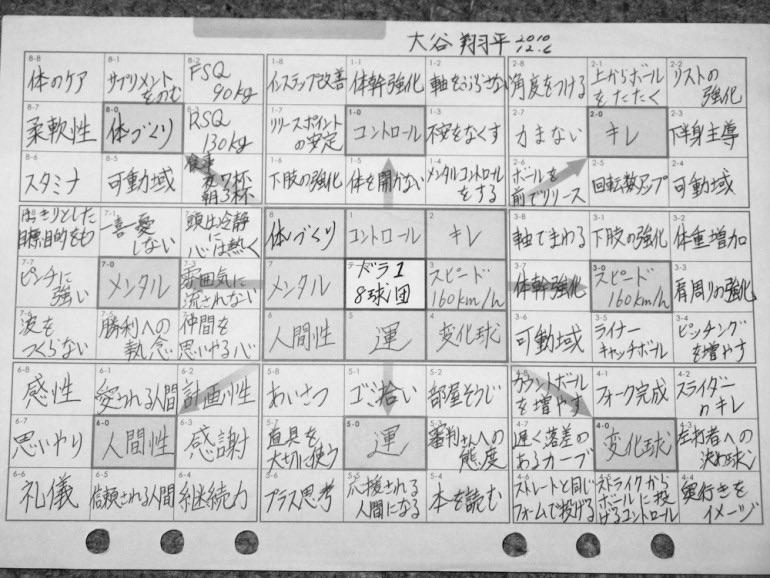 大谷 翔平 2010
12.6
8-8
体のケア
8-1
サプリメント
をのむ
8-2
FSQ
90kg
8-7
柔軟性
8-0
体づくり
8-3
RSQ
130kg
8-6
スタミナ
8-5
可動域
食事
夜7杯
朝3杯
1-8
インステップ改善
1-1
体幹強化
1-2
軸をぶらさない
1-7
リリースポイント
の安定
1-0
コントロール
1-3
不安をなくす
1-6
下肢の強化
1-5
体を開かない
1-4
メンタルコントロール
をする
2-8
角度をつける
2-1
上からボール
をたたく
2-2
リストの
強化
2-7
力まない
2-0
キレ
2-3
下半身主導
2-6
ボールを
前でリリース
2-5
回転数アップ
2-4
可動域
はっきりとした
目標、目的をもつ
7-1
一喜一憂
しない
頭は冷静
に
心は熱く
7-7
ピンチに
強い
7-0
メンタル
7-3
雰囲気に
流されない
7-6
波を
つくらない
7-5
勝利への
執念
7-4
仲間を
思いやる心
8
体づくり
1
コントロール
2
キレ
7
メンタル
ドラ1
8球団
3
スピード
160km/h
6
人間性
5
運
4
変化球
3-8
軸でまわる
3-1
下肢の強化
3-2
体重増加
3-7
体幹強化
3-0
スピード
160km/h
3-3
肩周りの強化
3-6
可動域
3-5
ライナー
キャッチボール
3-4
ピッチング
を増やす
6-8
感性
6-1
愛される人間
6-2
計画性
6-7
思いやり
6-0
人間性
6-3
感謝
6-6
礼儀
6-5
信頼される人間
6-4
継続力
5-8
あいさつ
5-1
ゴミ拾い
5-2
部屋そうじ
5-7
道具を
大切に使う
5-0
運
5-3
審判さんへの
態度
5-6
プラス思考
5-5
応援される
人間になる
5-4
本を読む
4-8
カウントボール
を増やす
4-1
フォーク完成
4-2
スライダー
のキレ
4-7
遅く落差の
あるカーブ
4-0
変化球
4-3
左打者への
決め球
4-6
ストレートと同じ
フォームで投げる
ストライクから
ボールに投
げるコントロール
4-4
奥行きを
イメージ